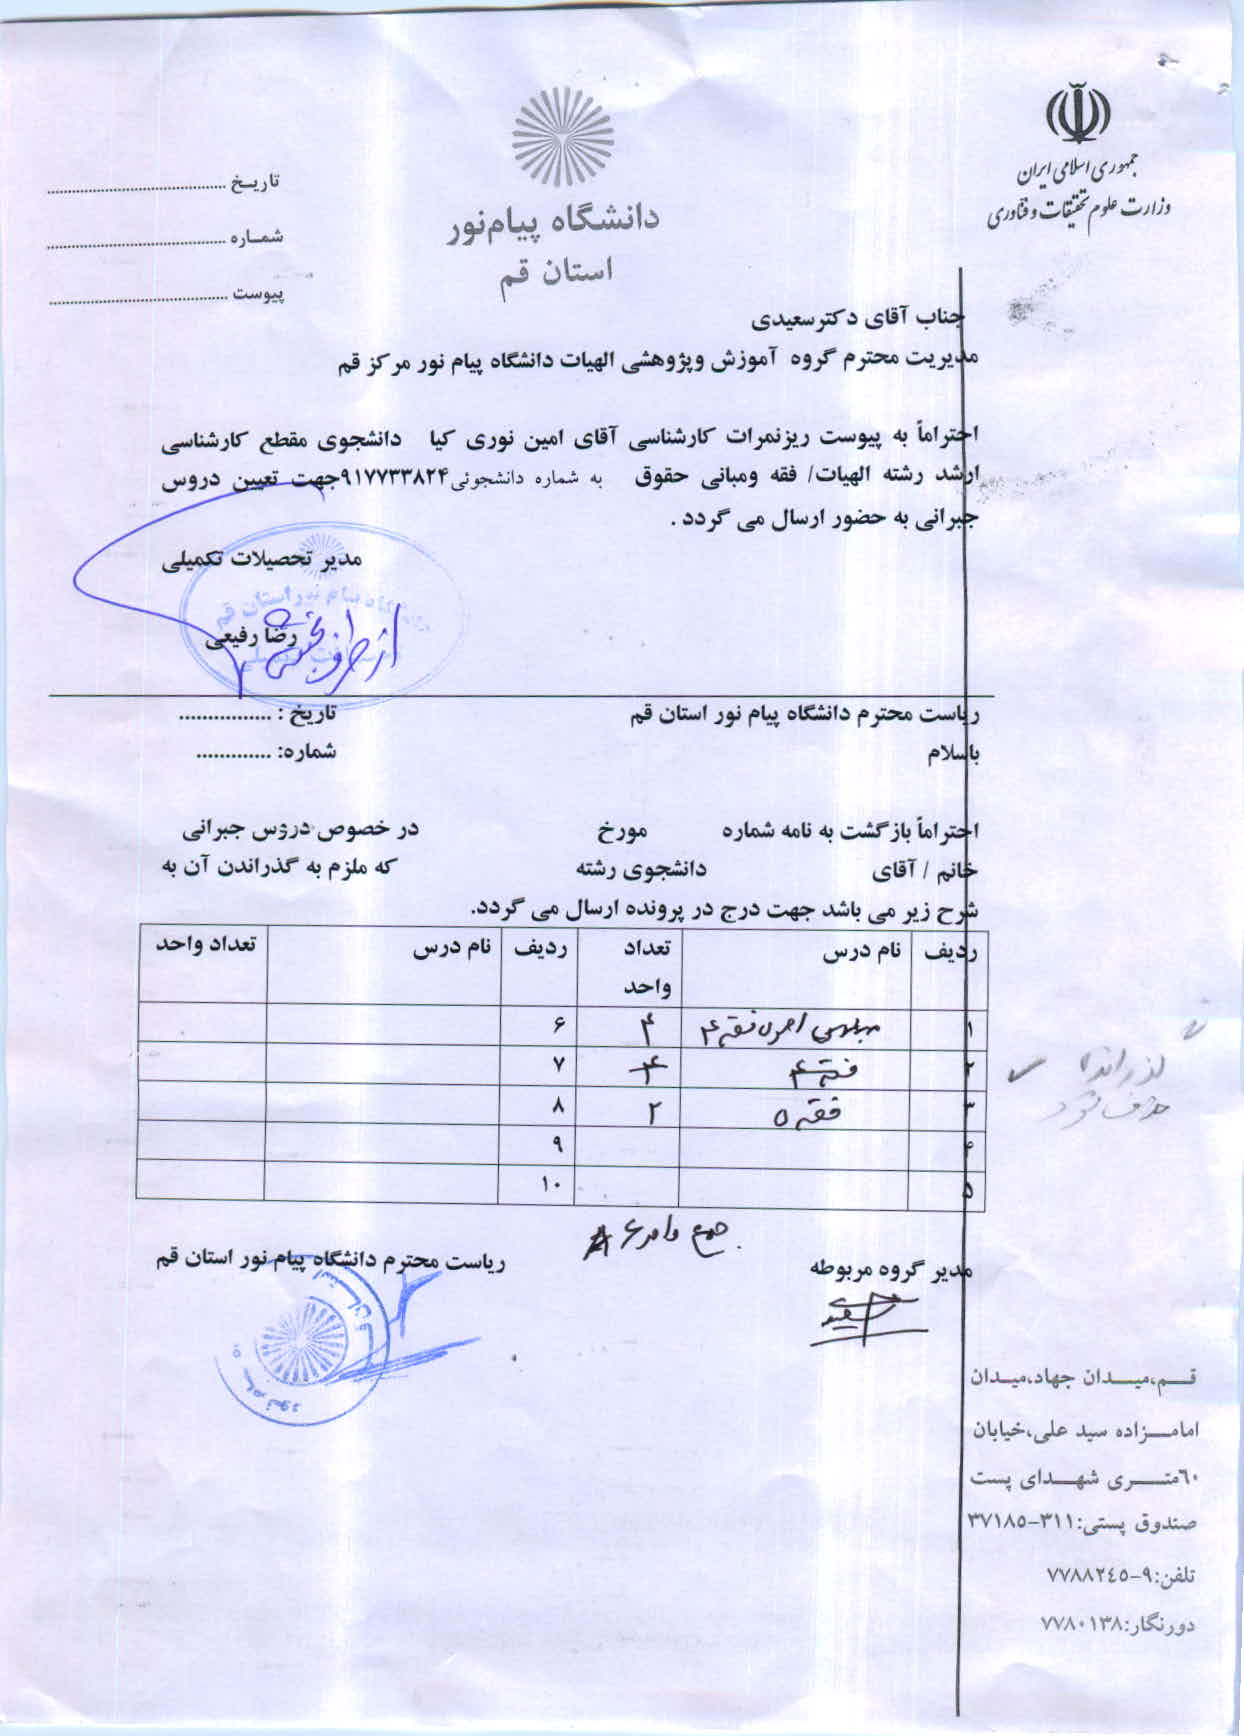 جمهوری اسلامی ایران
وزارت علوم تحقیقات و فناوری
دانشگاه پیام‌نور
استان قم
تاریـخ ........................................
شمـاره ........................................
پیوست ........................................
جناب آقای دکترسعیدی
مدیریت محترم گروه آموزش وپژوهشی الهیات دانشگاه پیام نور مرکز قم
احتراماً به پیوست ریزنمرات کارشناسی آقای امین نوری کیا دانشجوی مقطع کارشناسی
ارشد رشته الهیات/ فقه ومبانی حقوق به شماره دانشجوئی ۹۱۷۷۳۳۸۲۴جهت تعیین دروس
جبرانی به حضور ارسال می گردد .
مدیر تحصیلات تکمیلی
دانشگاه پیام نور استان قم
رضا رفیعی
از طرف
ریاست محترم دانشگاه پیام نور استان قم
تاریخ : ................
باسلام
شماره: .............
احتراماً بازگشت به نامه شماره مورخ در خصوص دروس جبرانی
خانم / آقای دانشجوی رشته که ملزم به گذراندن آن به
شرح زیر می باشد جهت درج در پرونده ارسال می گردد.
ردیف نام درس تعداد واحد ردیف نام درس تعداد واحد
۱ اصول فقه ۴ ۴ ۶
۲ فقه ۴ ۴ ۷
۳ فقه ۵ ۲ ۸
۴ ۹
۵ ۱۰
گذرانده
حذف شود
جمع واحد ۶
مدیر گروه مربوطه
ریاست محترم دانشگاه پیام نور استان قم
قــم،میــدان جهاد،میـدان
امامــزاده سید علی،خیابان
٦٠متــری شهــدای پست
صندوق پستی:۳۱۱-۳۷۱۸۵
تلفن:۹-۷۷۸۸۲٤۵
دورنگار:۷۷۸۰۱۳۸